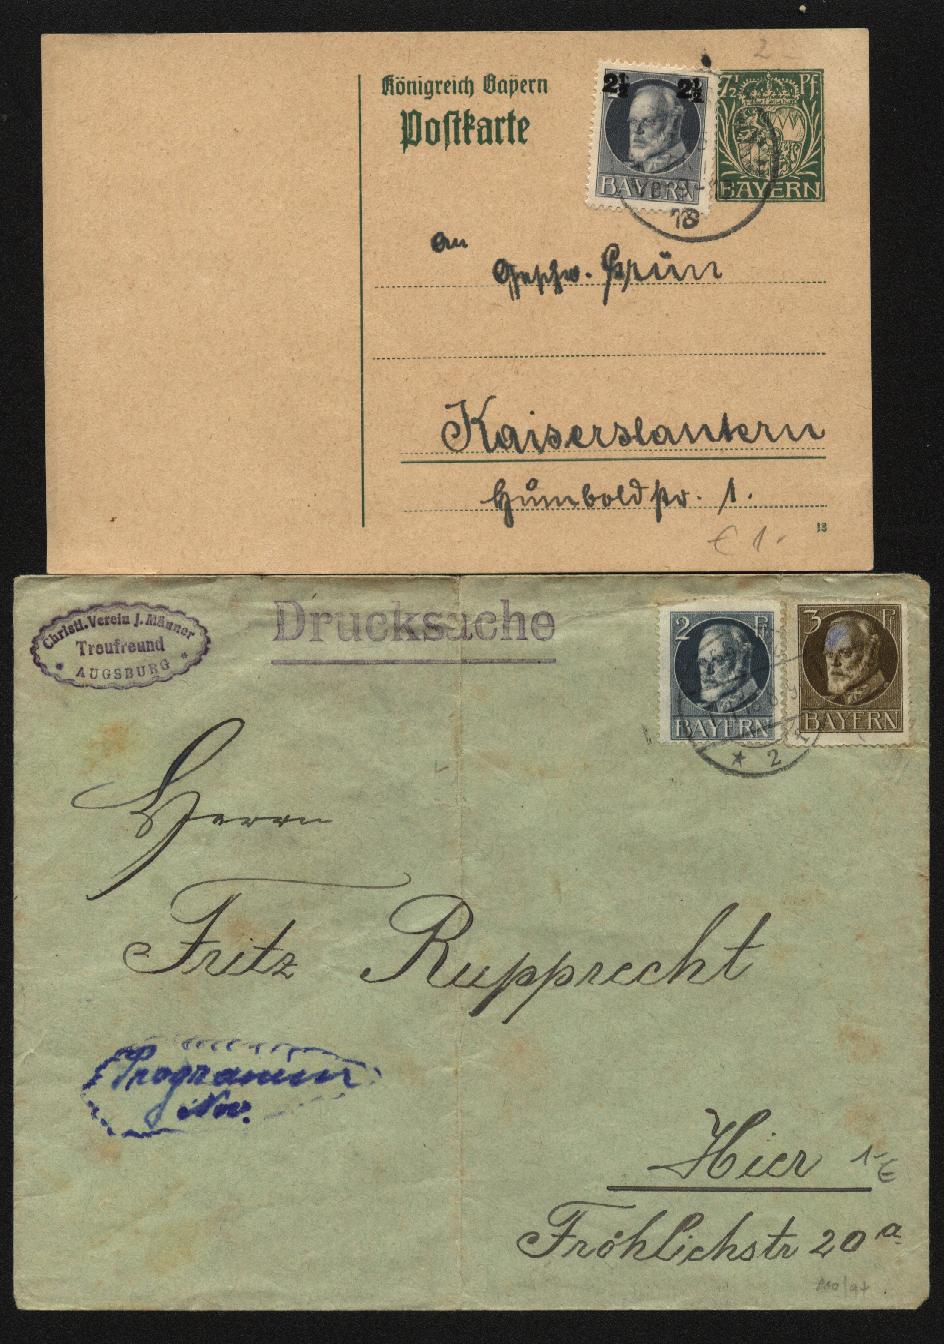 2
Königreich Bayern
Postkarte
2½ 2½
BAYERN
7½ Pf.
BAYERN
18
An
Geschw. Grün
Kaiserslautern
Humboldstr. 1.
€ 1.-
18
Christl. Verein J. Männer
Treufreund
AUGSBURG
Drucksache
2 PF
BAYERN
3 PF
BAYERN
* 2
Herrn
Fritz Rupprecht
Programm
Nov.
Hier
1.- €
Fröhlichstr 20 a.